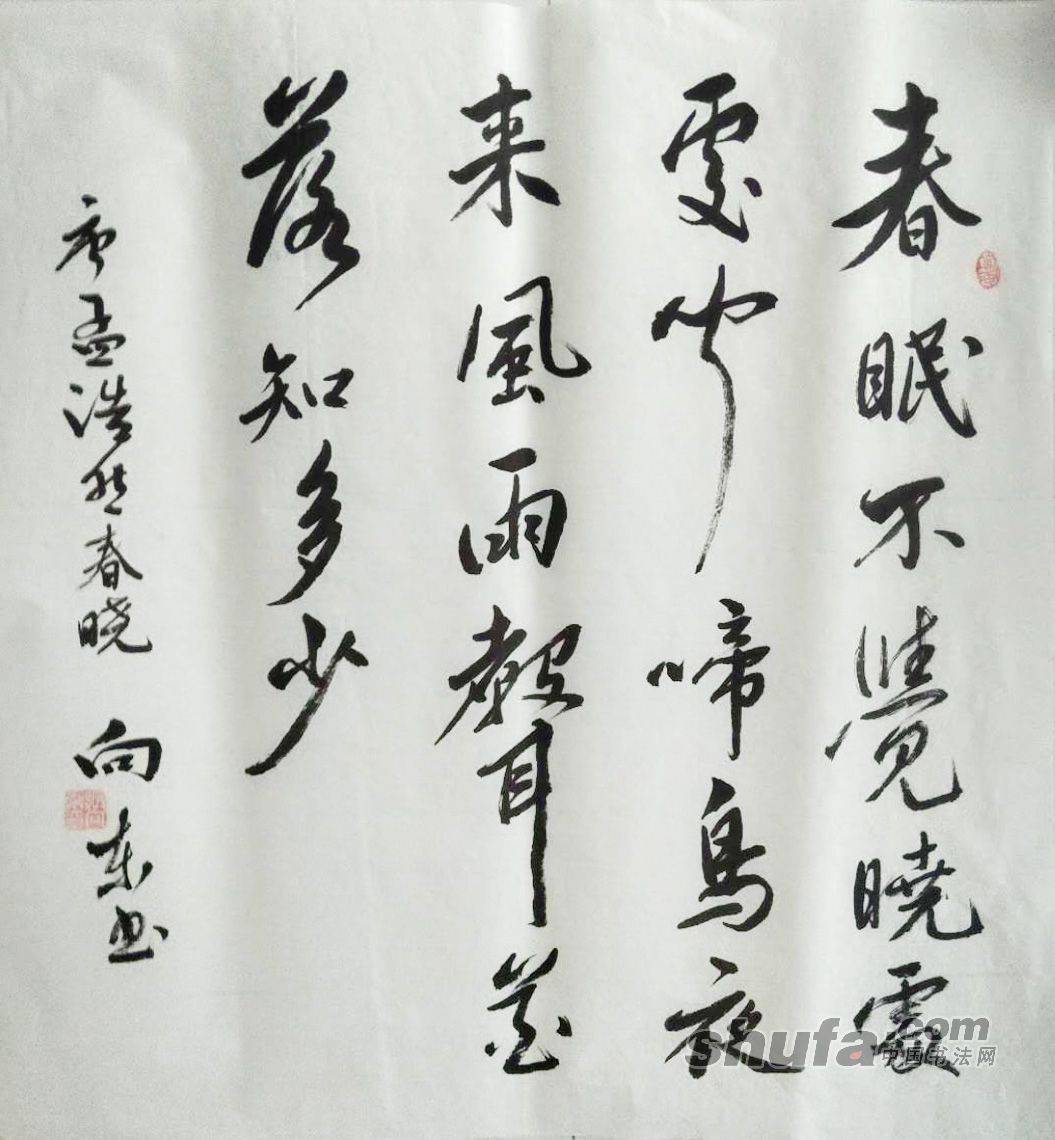 春眠不覺曉處
處聞啼鳥夜
来風雨聲花
落知多少
唐孟浩然春曉 向東书
shufa.com
中国书法网